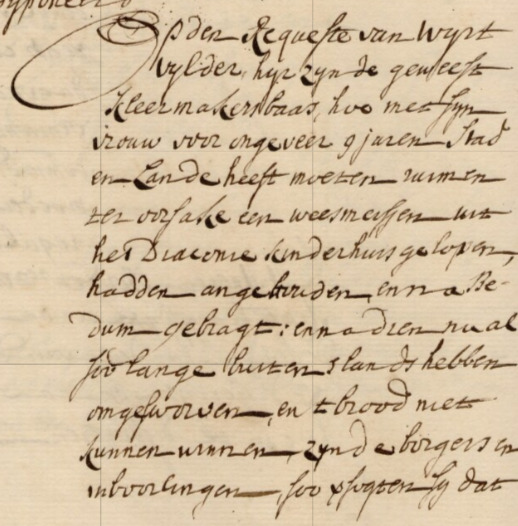 Op den Requeste van Wyrt
Vylder, hyr zynde geweest
kleermakersbaas, hoe met syn
vrouw voor ongeveer 9 jaren Stad
en Lande heeft moeten ruimen
ter oorsake een weesmeissen uit
het Diaconie kinderhuis gelopen,
hadden angehouden, en na Be-
dum gebragt: en nadien nu al
soo lange buitenslands hebben
omgesworven, en t brood niet
kunnen winnen, zynde borgers en
inboorlingen, soo versogten sy dat